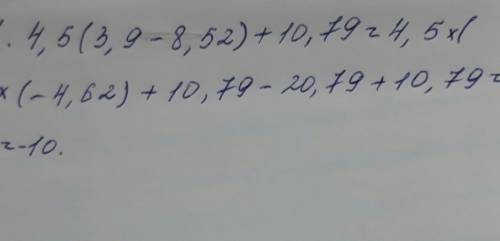 1. 4,5(3,9-8,52)+10,79=4,5×(
×(-4,62)+10,79-20,79+10,79=
=-10.